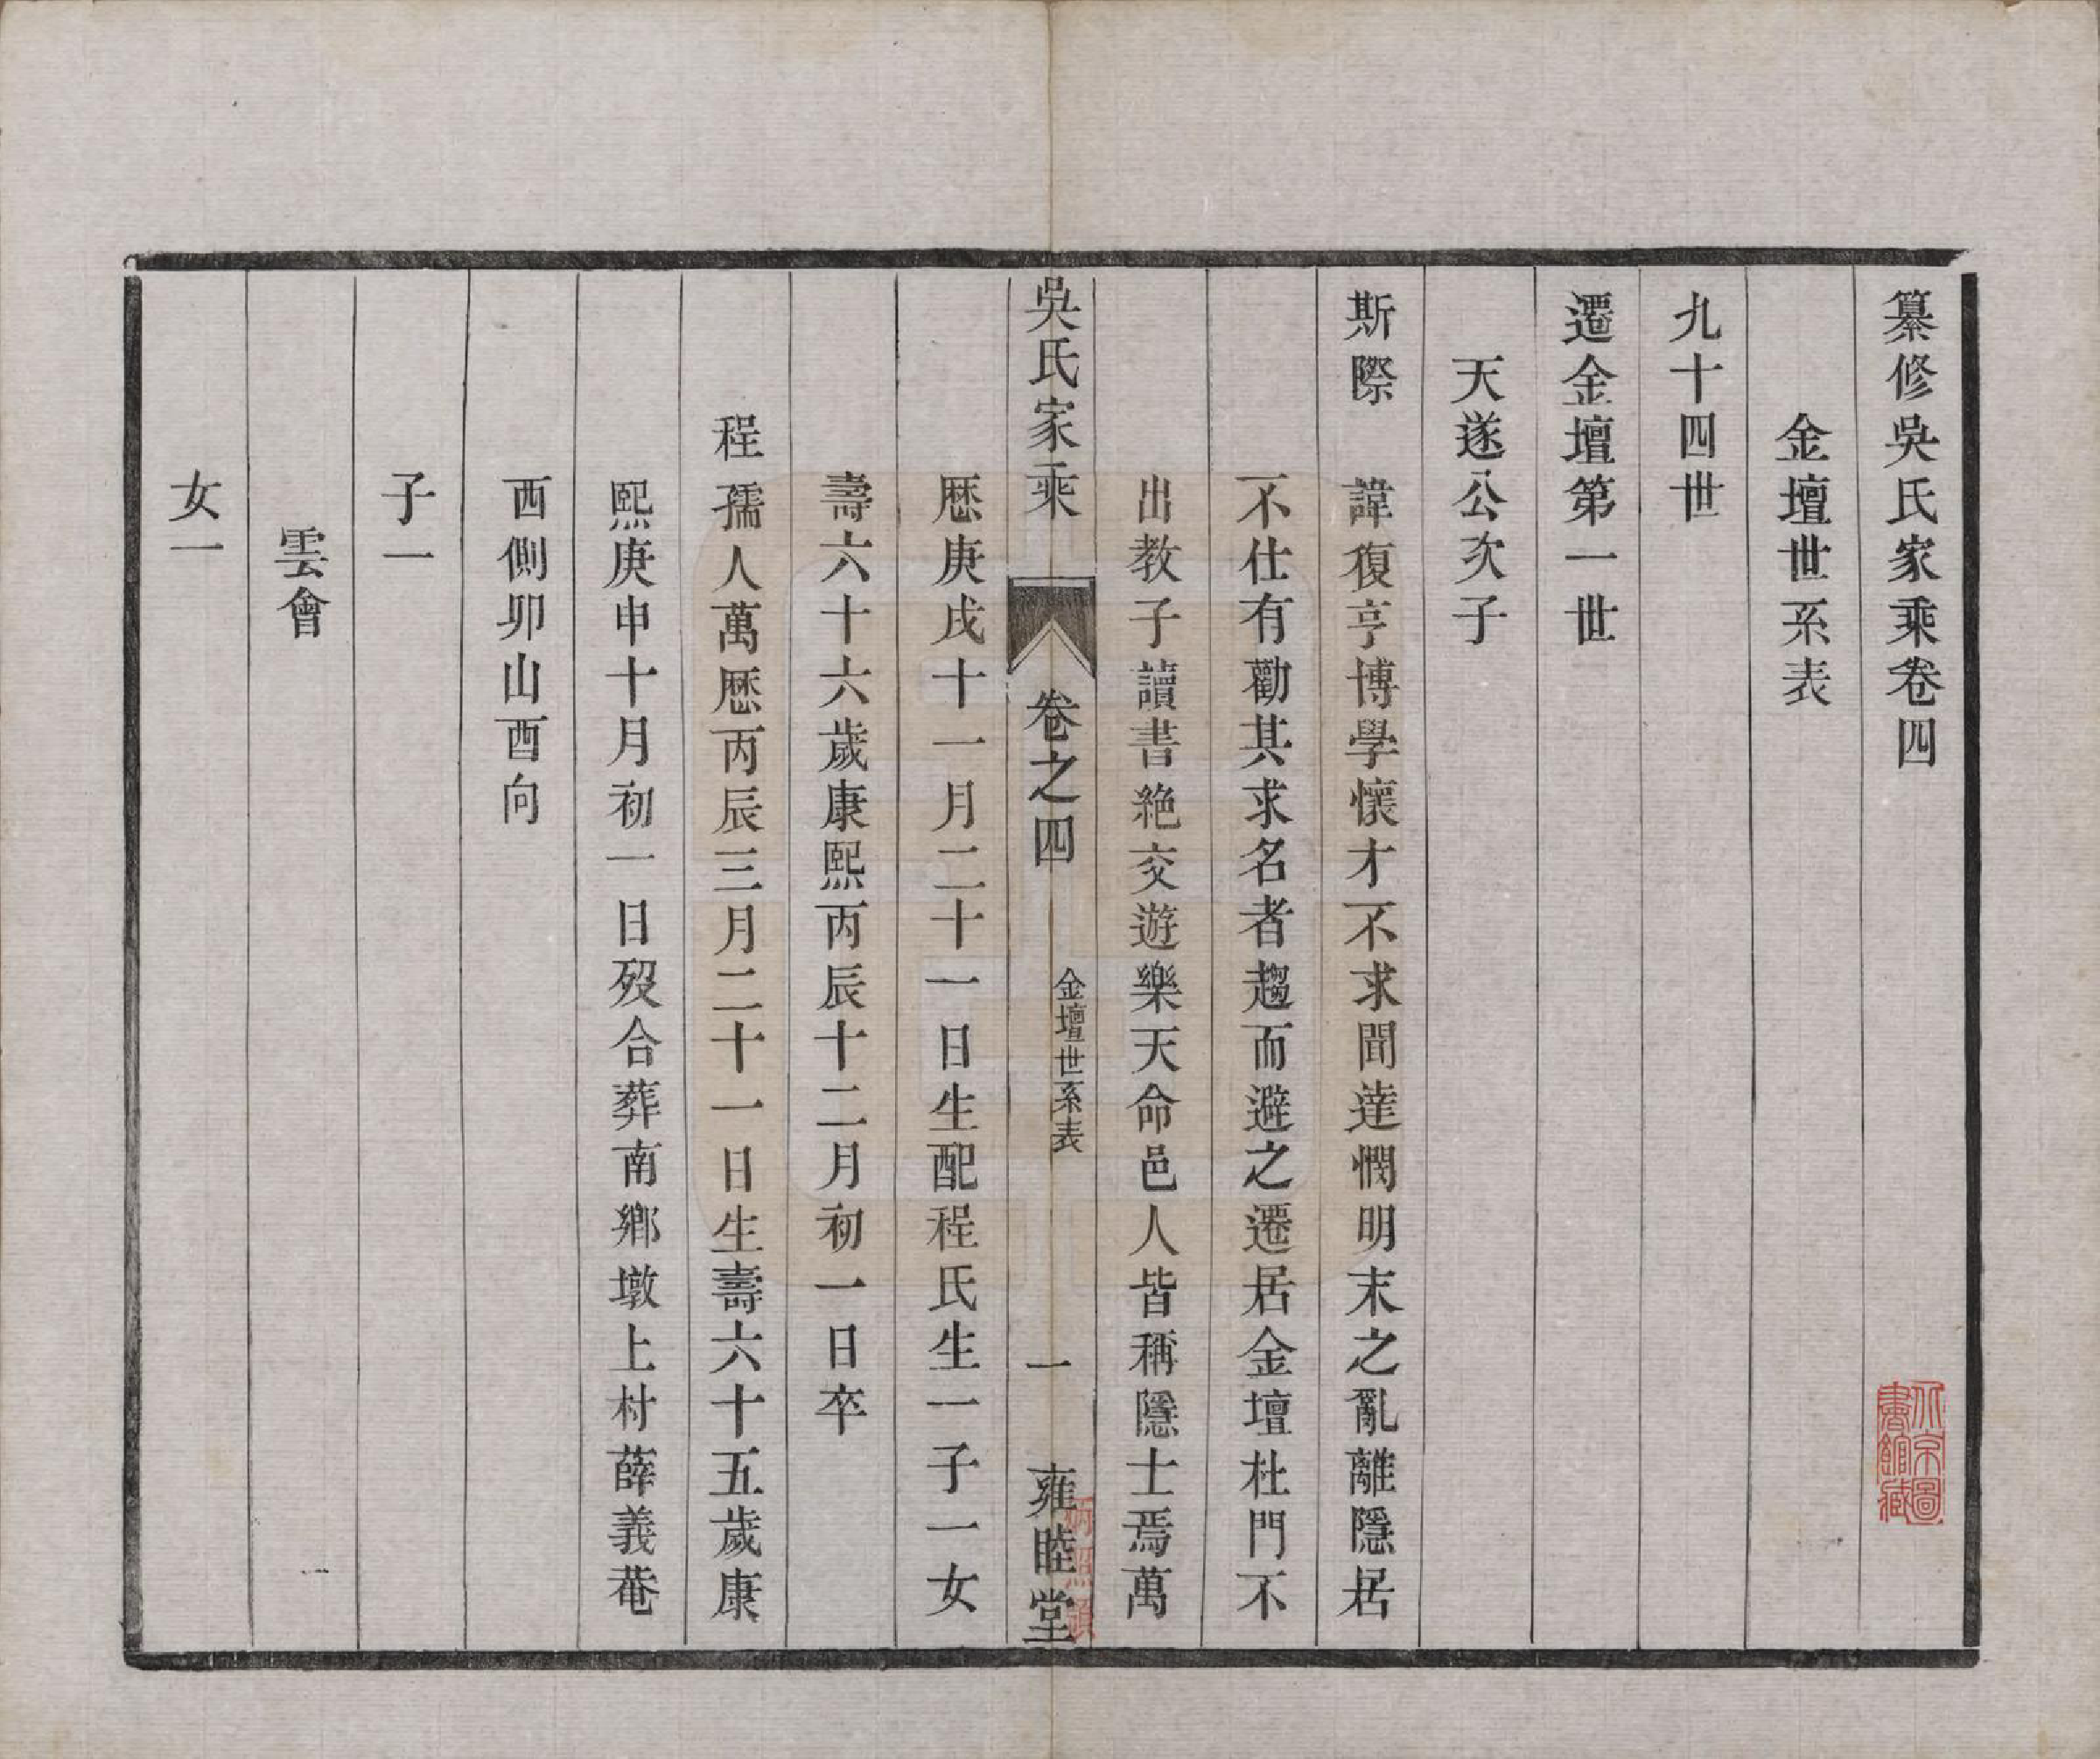 纂修吳氏家乘卷四
金壇世系表
九十四世
遷金壇第一世
天遂公次子
斯際 諱復亨博學懷才不求聞達憫明末之亂離隱居
不仕有勸其求名者趨而避之遷居金壇杜門不
出教子讀書絶交遊樂天命邑人皆稱隱士焉萬
吳氏家乘 卷之四 金壇世系表 一 雍睦堂
厯庚戌十一月二十一日生配程氏生一子一女
壽六十六歲康熙丙辰十二月初一日卒
程孺人萬厯丙辰三月二十一日生壽六十五歲康
熙庚申十月初一日歿合葬南鄉墩上村薛義菴
西側卯山酉向
子一
雲會
女一
北京圖
書館藏